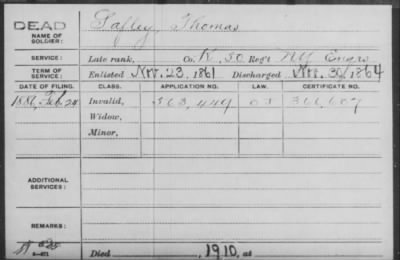 DEAD
NAME OF SOLDIER: Thomas
SERVICE: Late rank, Co. K, 50 Reg't NY Engrs
TERM OF SERVICE: Enlisted Nov. 23, 1861 Discharged Nov. 30, 1864
DATE OF FILING. CLASS. APPLICATION NO. LAW. CERTIFICATE NO.
Feb. 24 Invalid, 363,449
Widow,
Minor,
ADDITIONAL SERVICES:
REMARKS:
Died 1910, at